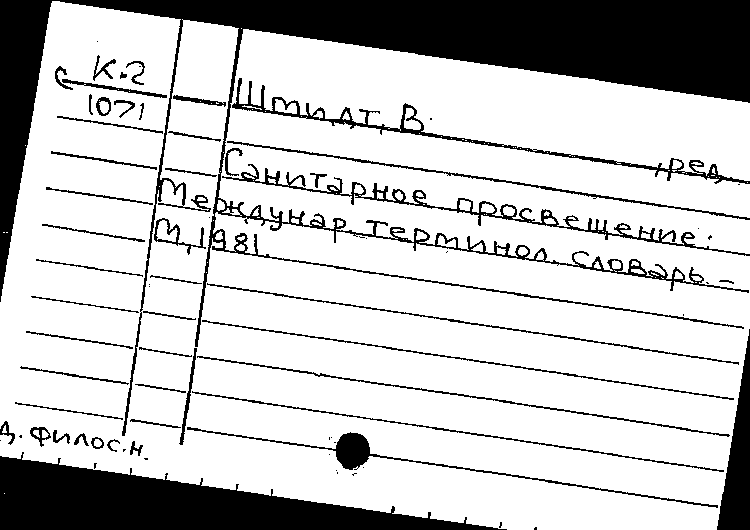 К-2
1071
Шмидт, В.
, ред.
Санитарное просвещение:
Междунар. терминол. словарь -
М, 1981.
д. филос. н.